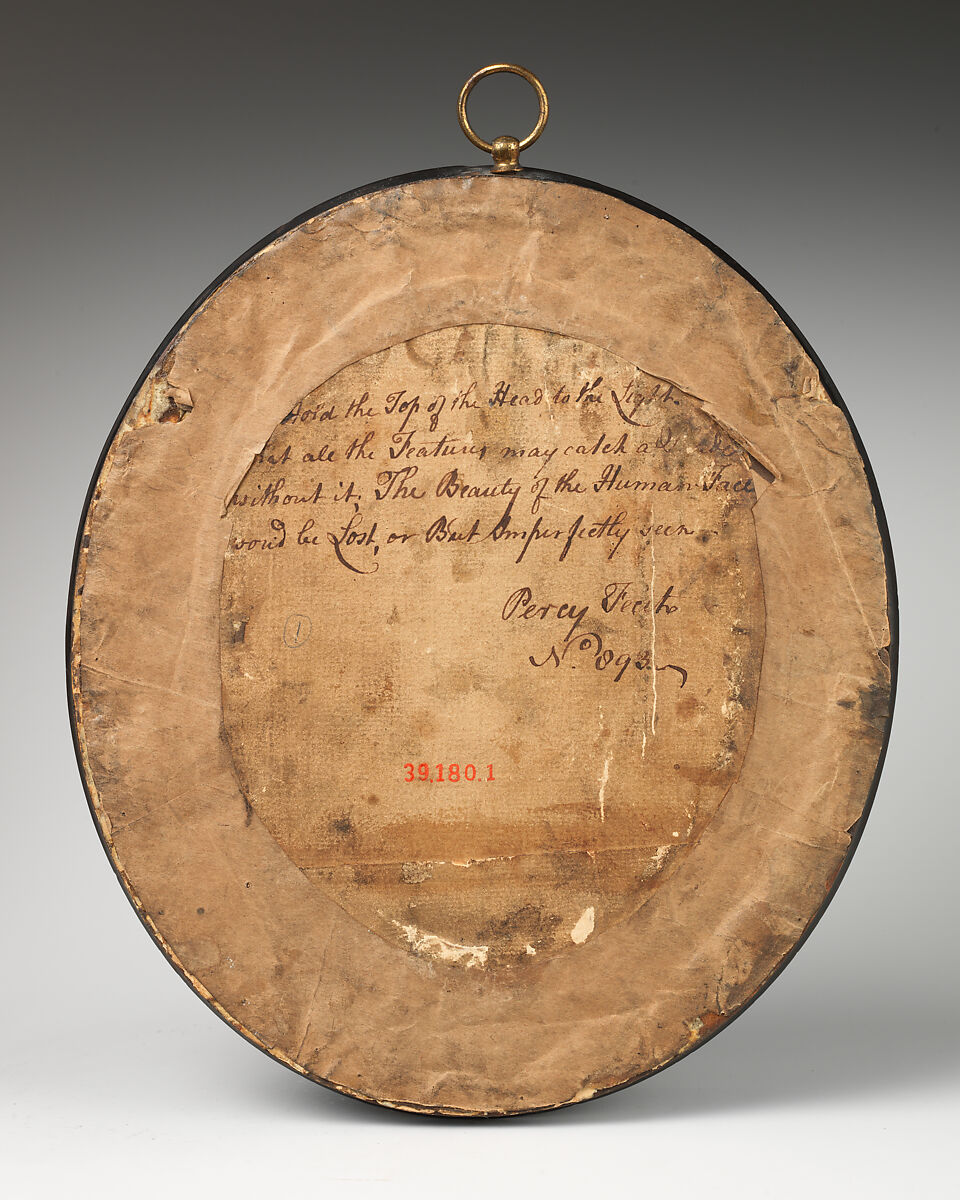 the Top of the Head to the Light
all the Features may catch a
without it, The Beauty of the Human Face
wou'd be Lost, or But Imperfectly seen
Percy Fecit
No. 893
1
39.180.1